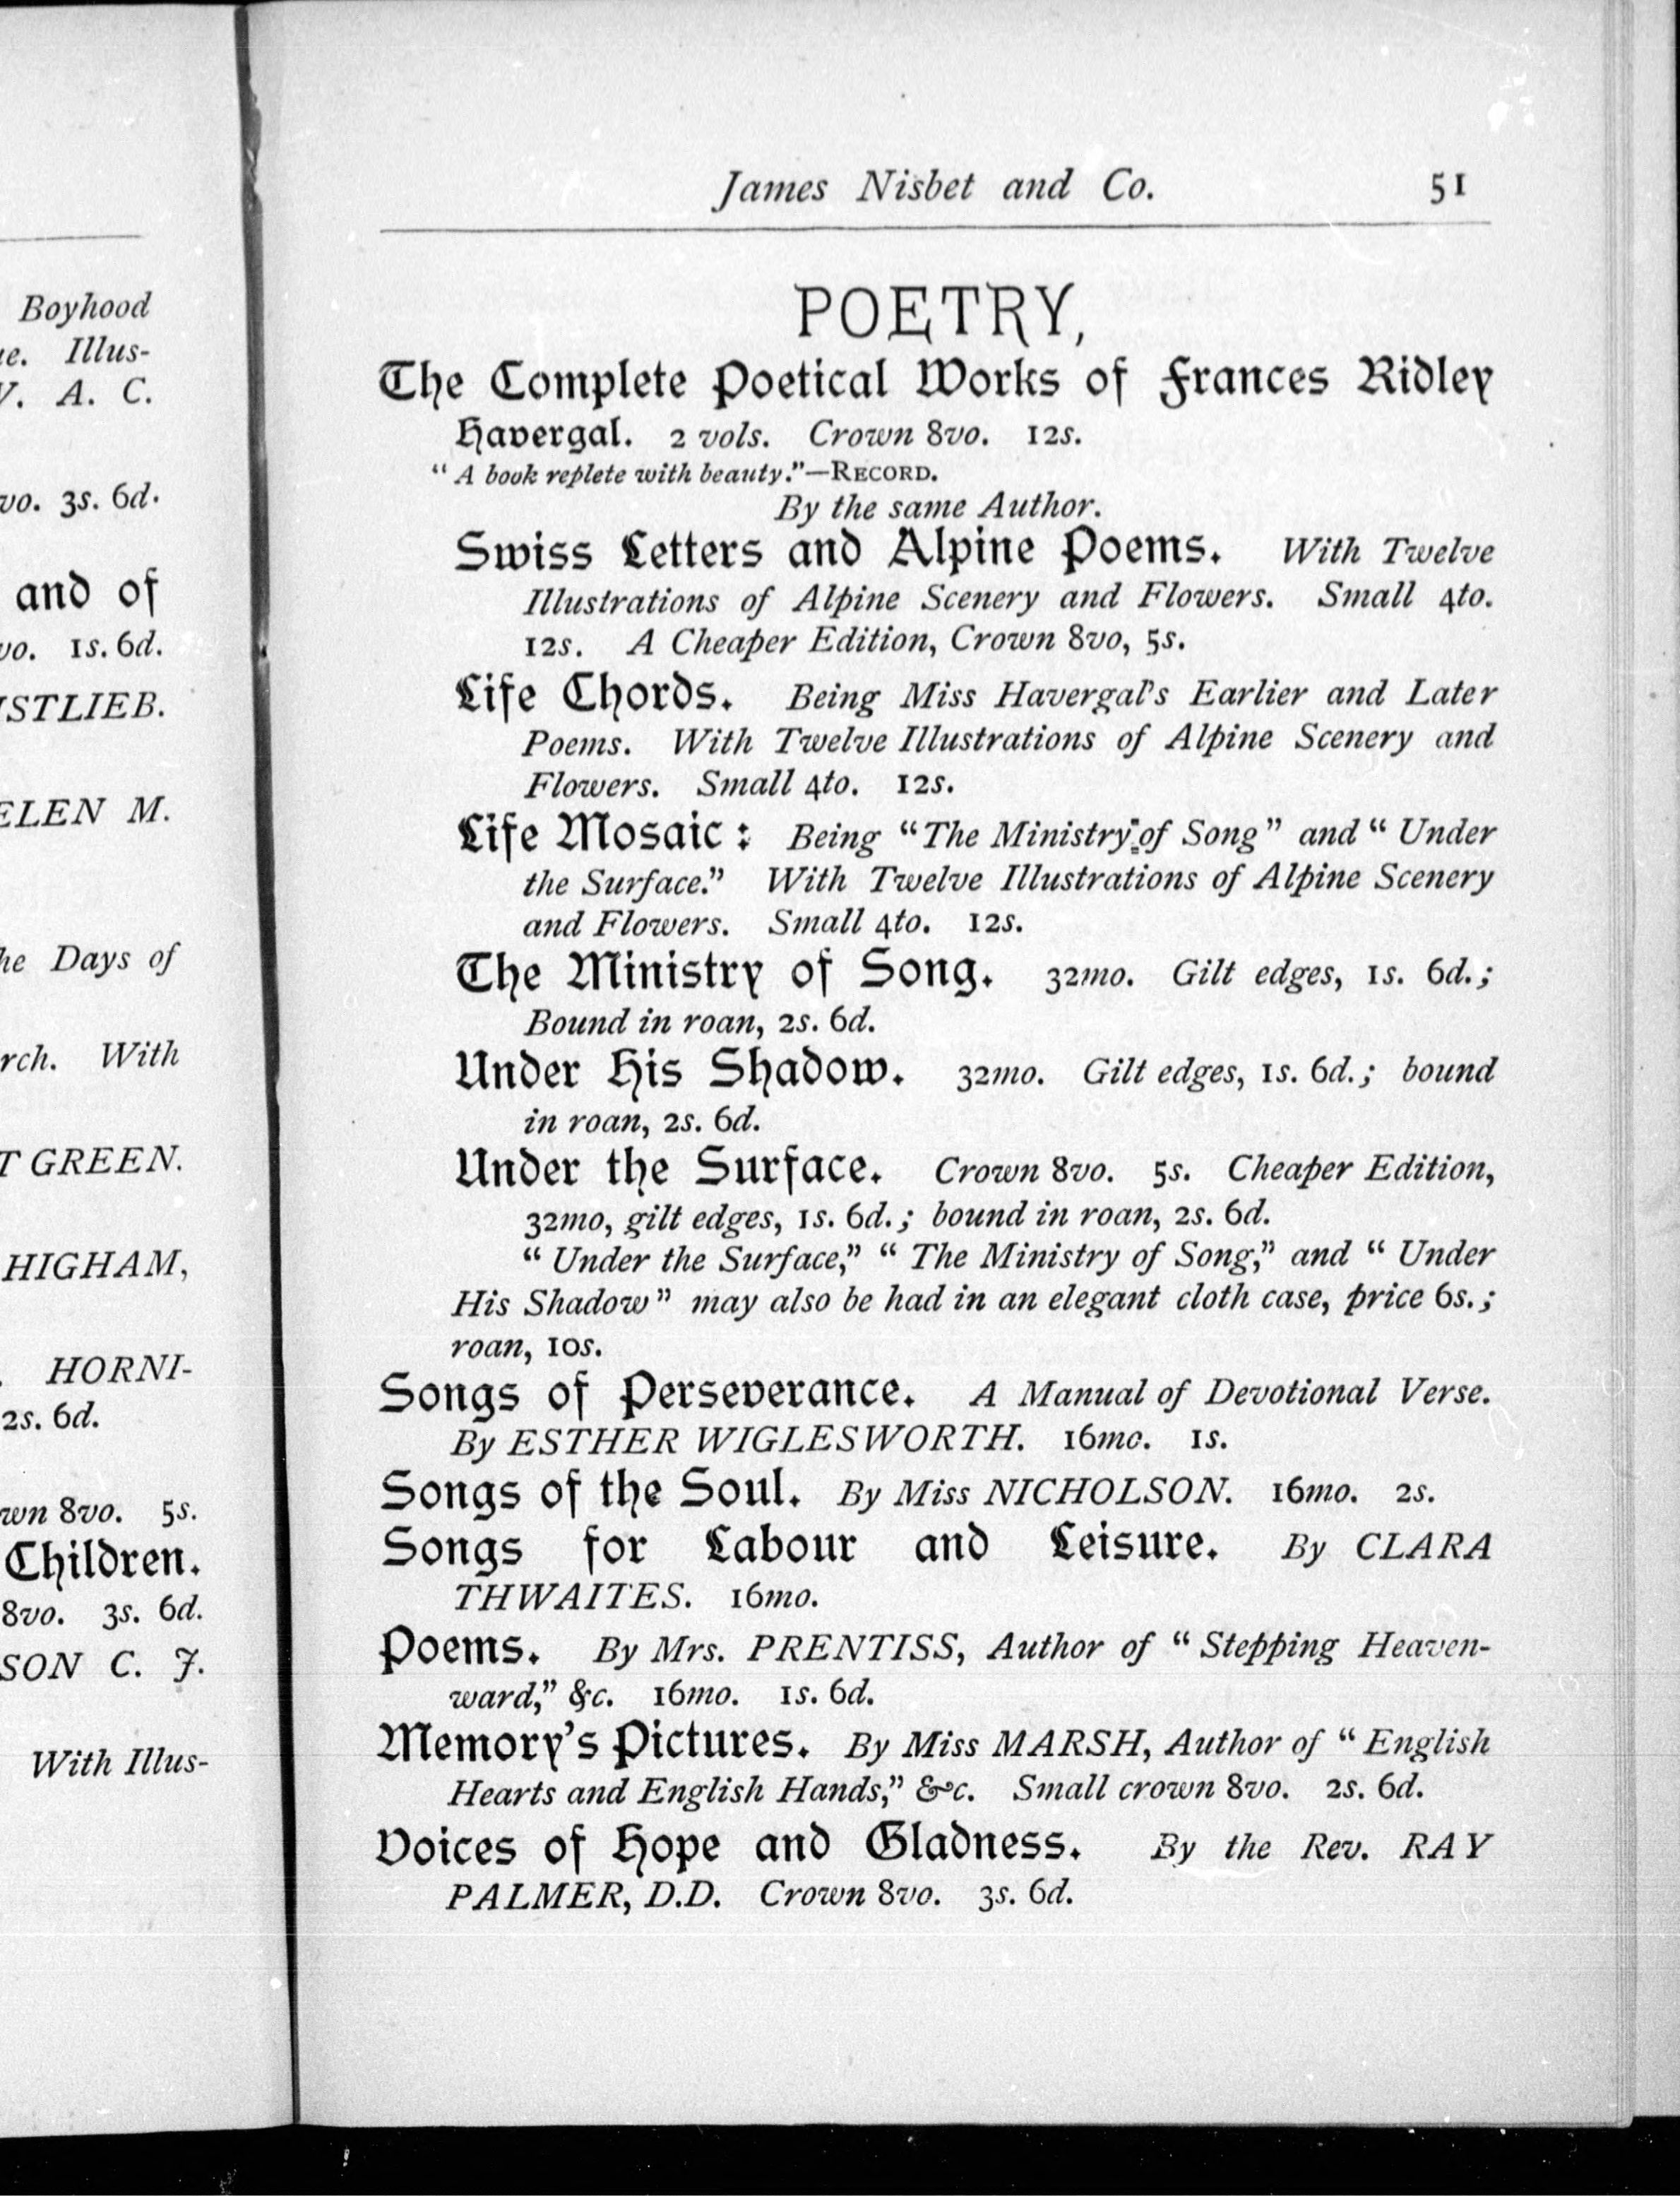 Boyhood
Illus-
A. C.
3s. 6d.
and of
1s. 6d.
Days of
With
GREEN.
HIGHAM,
HORNI-
2s. 6d.
8vo. 5s.
Children.
8vo. 3s. 6d.
C. J.
With Illus-
James Nisbet and Co. 51
POETRY,
The Complete Poetical Works of Frances Ridley
Havergal. 2 vols. Crown 8vo. 12s.
“A book replete with beauty.”—RECORD.
By the same Author.
Swiss Letters and Alpine Poems. With Twelve
Illustrations of Alpine Scenery and Flowers. Small 4to.
12s. A Cheaper Edition, Crown 8vo, 5s.
Life Chords. Being Miss Havergal's Earlier and Later
Poems. With Twelve Illustrations of Alpine Scenery and
Flowers. Small 4to. 12s.
Life Mosaic: Being “The Ministry of Song” and “Under
the Surface.” With Twelve Illustrations of Alpine Scenery
and Flowers. Small 4to. 12s.
The Ministry of Song. 32mo. Gilt edges, 1s. 6d.;
Bound in roan, 2s. 6d.
Under His Shadow. 32mo. Gilt edges, 1s. 6d.; bound
in roan, 2s. 6d.
Under the Surface. Crown 8vo. 5s. Cheaper Edition,
32mo, gilt edges, 1s. 6d.; bound in roan, 2s. 6d.
“Under the Surface,” “The Ministry of Song,” and “Under
His Shadow” may also be had in an elegant cloth case, price 6s.;
roan, 10s.
Songs of Perseverance. A Manual of Devotional Verse.
By ESTHER WIGLESWORTH. 16mo. 1s.
Songs of the Soul. By Miss NICHOLSON. 16mo. 2s.
Songs for Labour and Leisure. By CLARA
THWAITES. 16mo.
Poems. By Mrs. PRENTISS, Author of “Stepping Heaven-
ward,” &c. 16mo. 1s. 6d.
Memory's Pictures. By Miss MARSH, Author of “English
Hearts and English Hands,” &c. Small crown 8vo. 2s. 6d.
Voices of Hope and Gladness. By the Rev. RAY
PALMER, D.D. Crown 8vo. 3s. 6d.